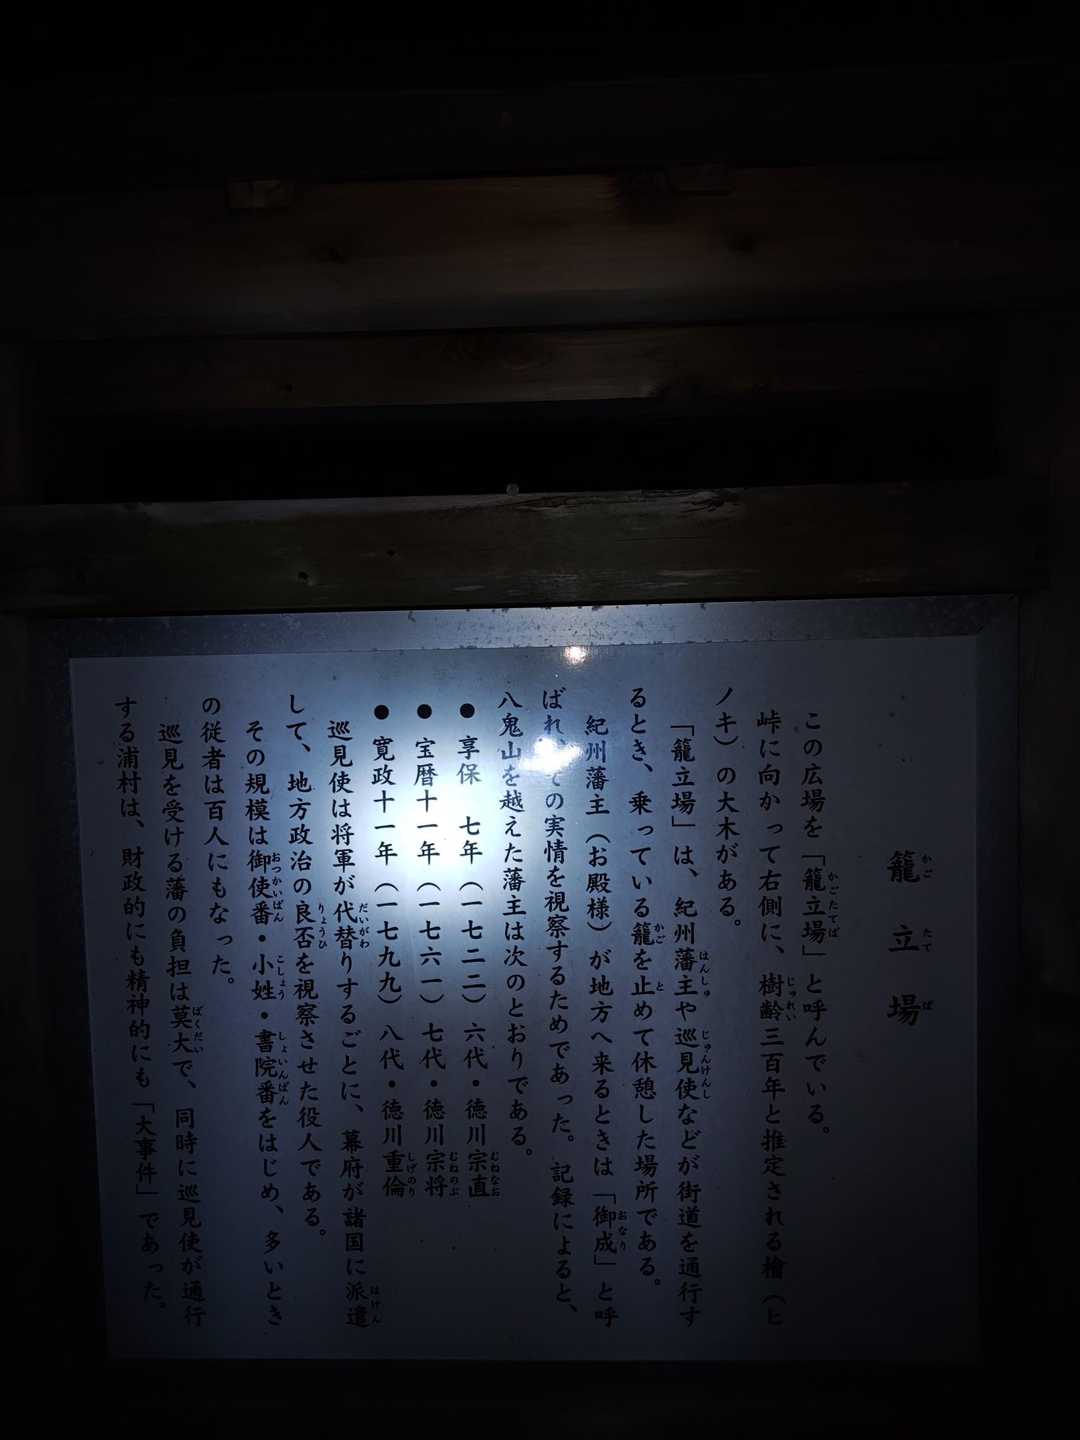 籠立場
この広場を「籠立場」と呼んでいる。
峠に向かって右側に、樹齢三百年と推定される檜（ヒ
ノキ）の大木がある。
「籠立場」は、紀州藩主や巡見使などが街道を通行す
るとき、乗っている籠を止めて休憩した場所である。
紀州藩主（お殿様）が地方へ来るときは「御成」と呼
ばれ、その実情を視察するためであった。記録によると、
八鬼山を越えた藩主は次のとおりである。
●享保　七年（一七二二）六代・徳川宗直
●宝暦十一年（一七六一）七代・徳川宗将
●寛政十一年（一七九九）八代・徳川重倫
巡見使は将軍が代替りするごとに、幕府が諸国に派遣
して、地方政治の良否を視察させた役人である。
その規模は御使番・小姓・書院番をはじめ、多いとき
の従者は百人にもなった。
巡見を受ける藩の負担は莫大で、同時に巡見使が通行
する浦村は、財政的にも精神的にも「大事件」であった。